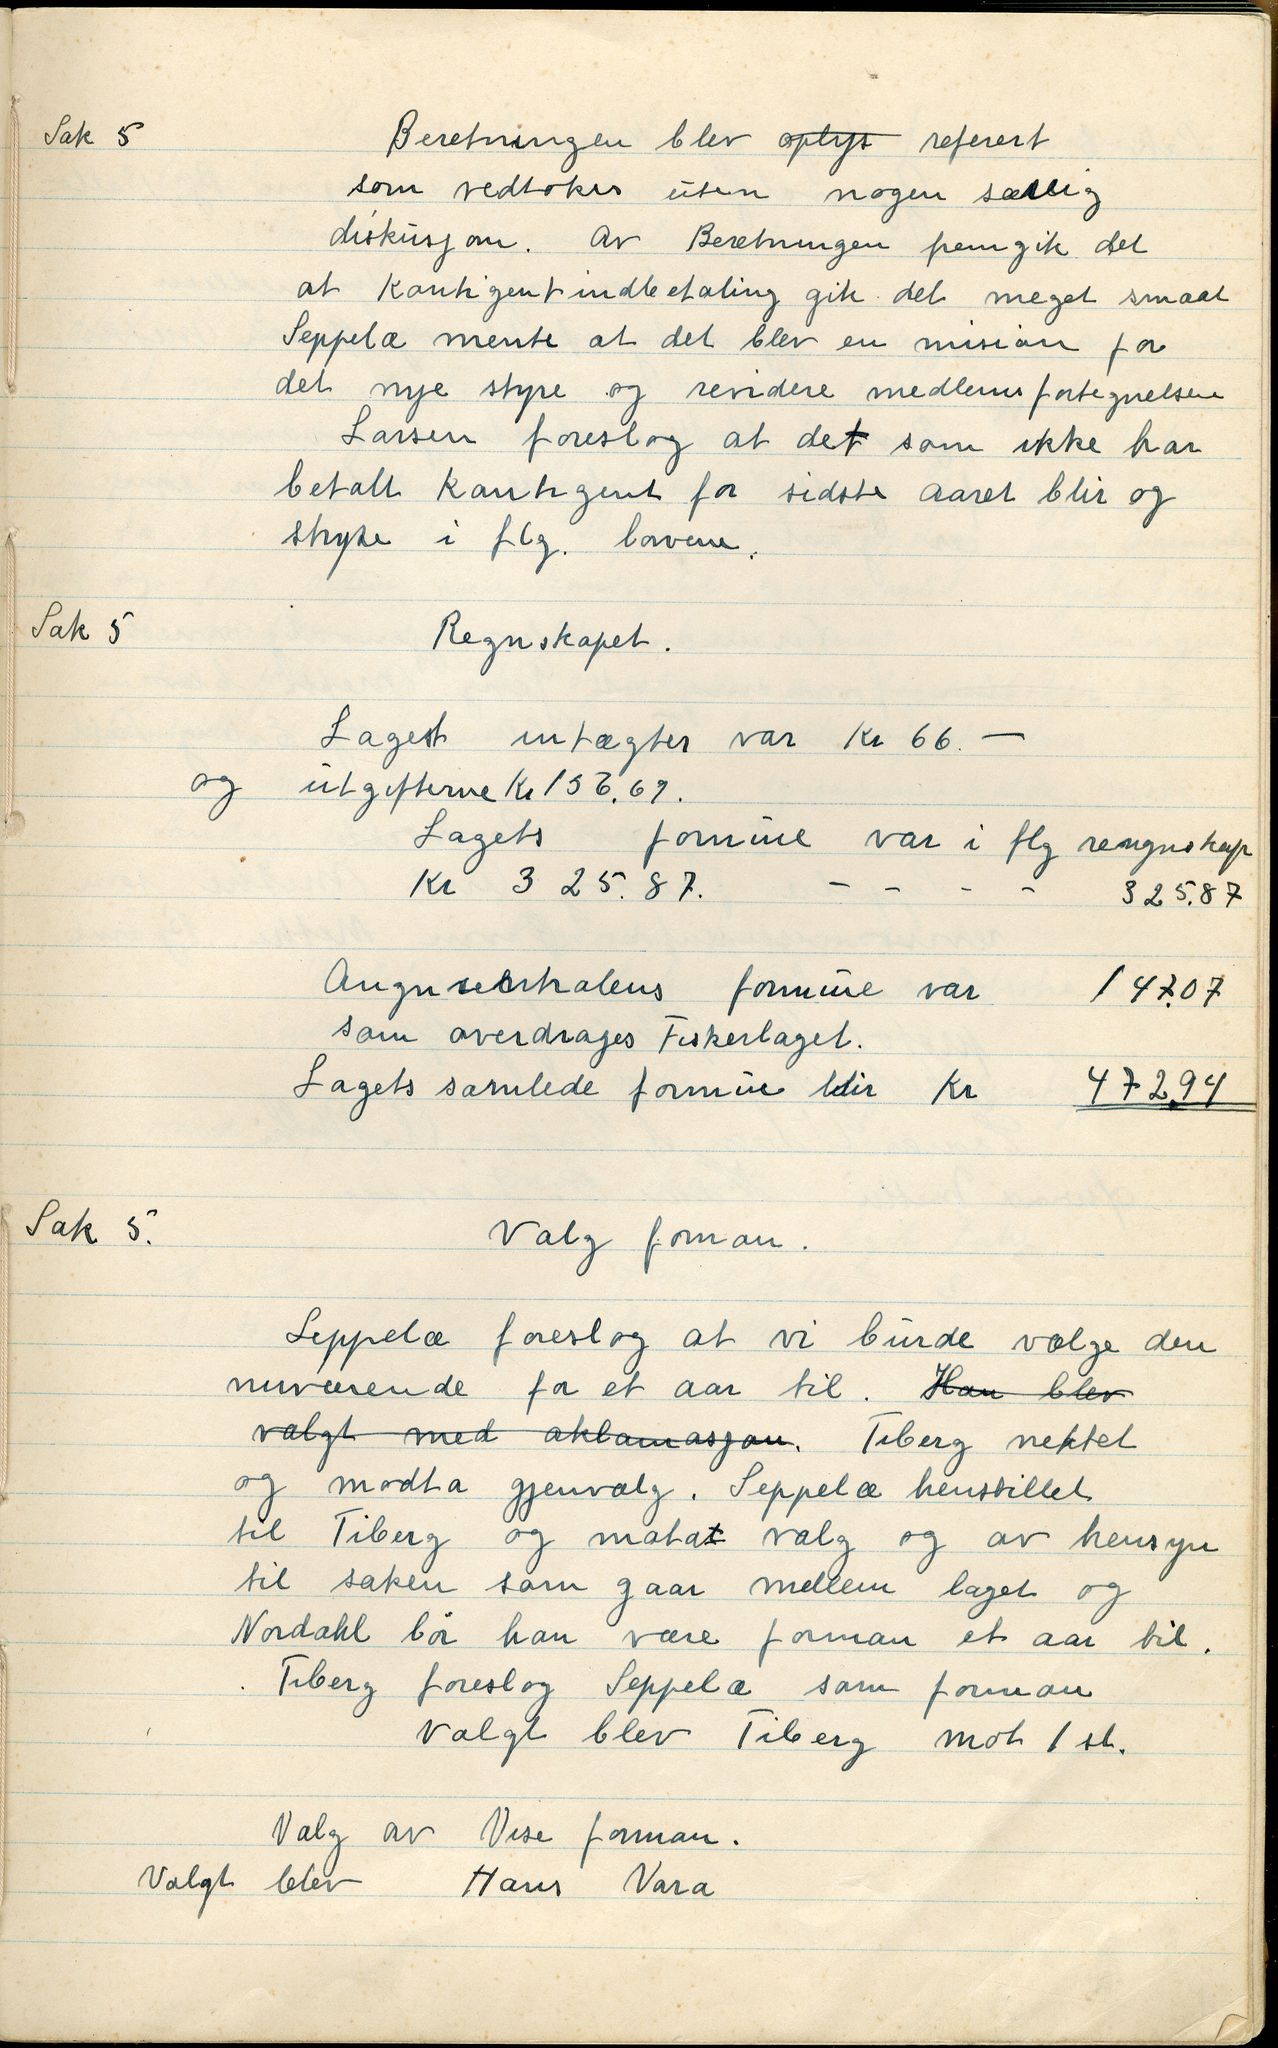 Sak 5 Beretningen blev oplyst referert
som vedtokes uten nogen særlig
diskusjon. Av Beretningen fremgik det
at Kontigentindbetaling gik det meget smaat
Seppelæ mente at det blev en misión for
det nye styre og revidere medlemsfortegnelsen
Larsen foreslog at det som ikke har
betalt Kontigent for sidste aaret blir og
stryke i flg. lovene.
Sak 5 Regnskapet.
Laget intægter var Kr 66.—
og utgifterne Kr 156.69.
Lagets formue var i flg rengnskap
Kr 325.87. - - - - 325.87
Angnsentralens formue var 147.07
som overdrages Fiskerlaget.
Lagets samlede formue blir Kr 472.94
Sak 5. Valg forman.
Seppelæ foreslog at vi burde vælge den
nuværende for et aar til. Han blev
valgt med aklamasjon. Tiberg nektet
og modta gjenvalg. Seppelæ henstillet
til Tiberg og motat valg og av hensyn
til saken som gaar mellem laget og
Nordahl bör han være forman et aar til.
Tiberg foreslog Seppelæ som forman
Valgt blev Tiberg mot 1 st.
Valg av Vise forman.
Valgt blev Hans Vara